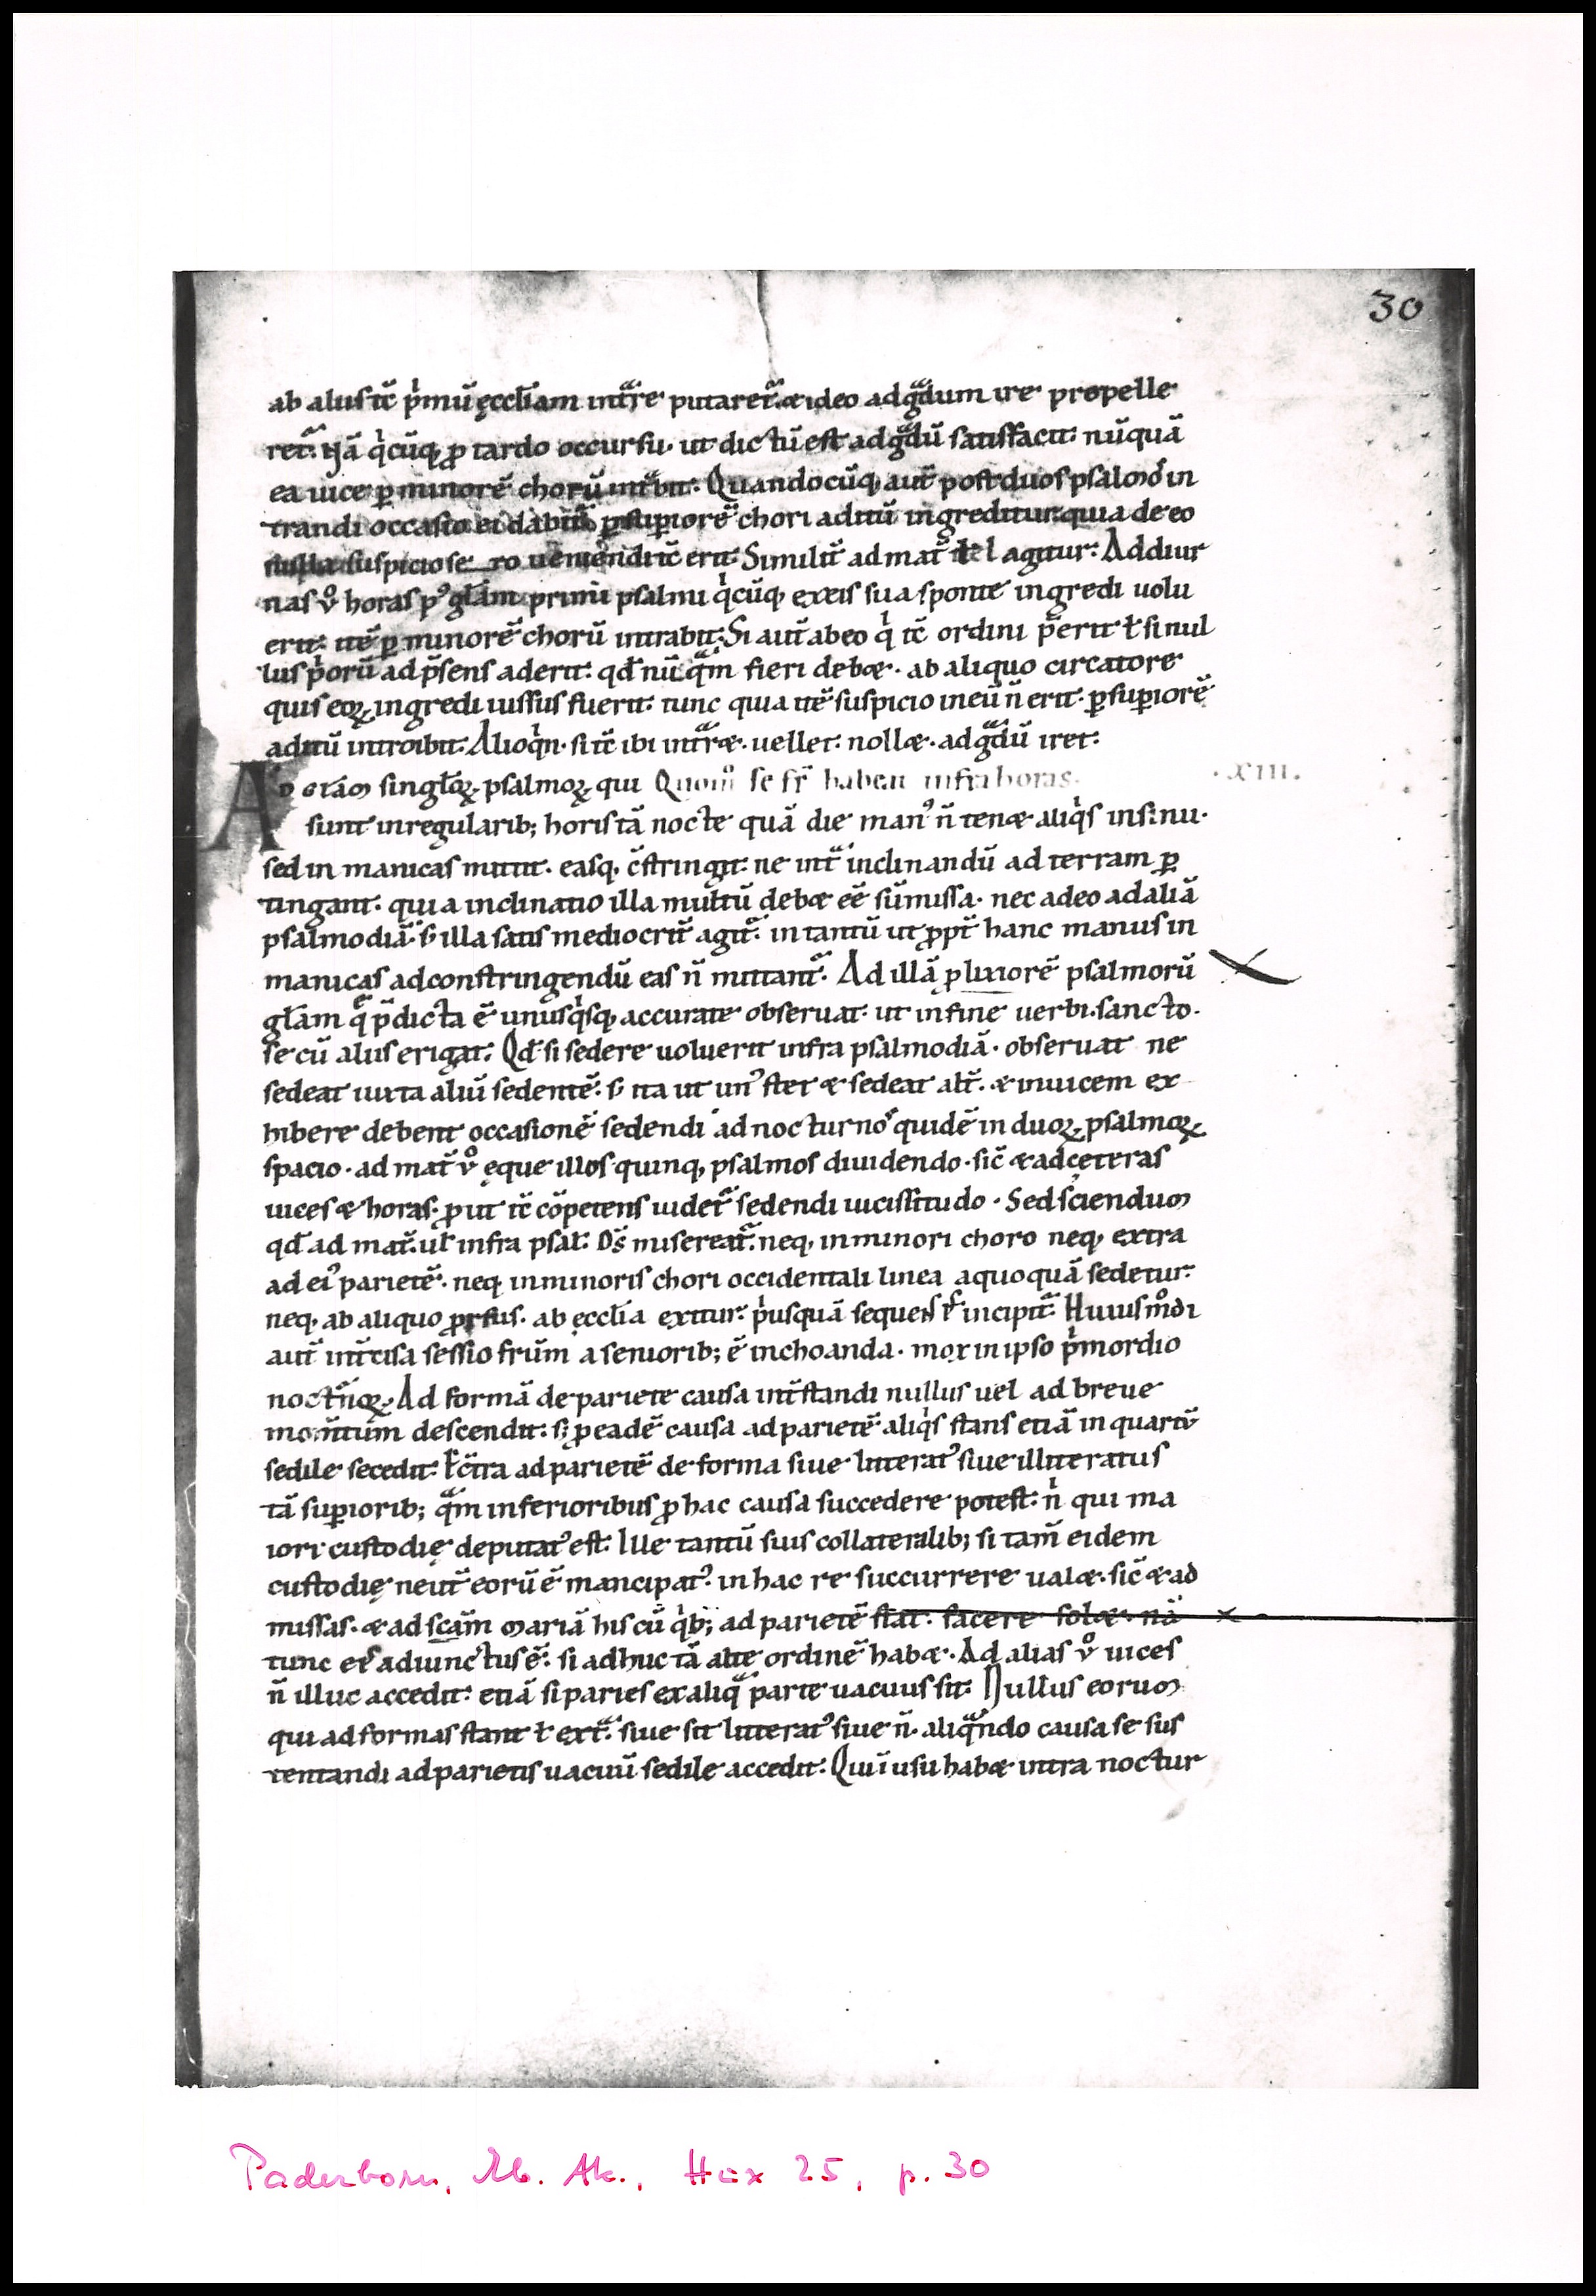 30
ab aliis tc̄ p̍mū ęccl̄iam intͣre putaret᷑. & ideo ad gͣdum ire propelle
ret᷑. Nā q̍cūq; ꝓ tardo occursu. ut dictū est ad gͣdū satisfacit: nūquā
ea uice ꝑ minorē chorū intͣbit: Quandocūq; aut̄ post duos psalmos in
trandi occasio ei dabit᷑ ꝑ suꝑiorē chori aditū ingreditur: quia de eo
nulla suspicio se ro ueniendi tc̄ erit: Similit̄ ad mat̄ agitur: Ad diur
nas v̊ horas pꝰ gl̄am primi psalmi q̍cūq; ex eis sua sponte ingredi uolu
erit: itē ꝑ minorē chorū intrabit: Si aut̄ ab eo q̍ tc̄ ordini p̄erit ł si nul
lus p̍orū ad p̄sens aderit: qđ nūqͣm fieri deb&. ab aliquo circatore
quis eoꝝ ingredi iussus fuerit: tunc quia itē suspicio in eū n̄ erit. ꝑ suꝑiorē
aditū introibit: Alioq̍n. si tc̄ ibi intͣr&. uellet: noll&. ad gͣdū iret:
AD GLĀM singl̄oꝝ psalmoꝝ qui Quom̊ se fr̄ habeāt infra horas. .XIII.
sunt in regularib; horis tā nocte quā die manꝰ n̄ ten& aliq̍s in sinu.
sed in manicas mittit. easq; c̄stringit: ne int̄ inclinandū ad terram ꝑ
tingant: quia inclinatio illa multū deb& eē sūmissa. nec adeo ad aliā
psalmodiā. s; illa satis mediocrit̄ agit᷑. in tantū ut ꝓpt̄ hanc manus in
manicas ad constringendū eas n̄ mittant᷑. Ad illā ꝓlixiorē psalmorū
gl̄am qͣ p̄dicta ē unusq̍sq; accurate obseruat: ut in fine uerbi. sancto.
se cū aliis erigat: Qđ si sedere uoluerit infra psalmodiā. obseruat ne
sedeat iuxta aliū sedentē: s; ita ut unꝰ stet & sedeat alt̄. & inuicem ex
hibere debent occasionē sedendi ad nocturnos quidē in duoꝝ psalmoꝝ
spacio. ad mat̄ v̊ ęque illos quinq; psalmos diuidendo. sic̄ & ad cęteras
uices & horas. ꝓut tc̄ cōpetens uidet᷑ sedendi uicissitudo. Sed sciendum
qđ ad mat̄. ul̄ infra psal̄. Ds̄ misereat᷑. neq; in minori choro neq; extra
ad eiꝰ parietē. neq; in minoris chori occidentali linea a quoquā sedetur.
neq; ab aliquo ꝓrsus. ab ęccl̄ia exitur: p̍usquā sequens incipit᷑ Huiusm̊di
aut̄ int̄cisa sessio frūm a seniorib; ē inchoanda. mox in ipso p̍mordio
noct̄noꝝ. Ad formā de pariete causa int̄standi nullus uel ad breue
mom̄tum descendit: s; ꝓ eadē causa ad parietē aliq̍s stans etiā in quartū
sedile secedit: ł c̄tra ad parietē de forma siue litteratꝰ siue illiteratus
tā suꝑiorib; qͣm inferioribus ꝓ hac causa succedere potest: n̍ qui ma
iori custodię deputatꝰ est: Ille tantū suis collateralib; si tam̄ eidem
custodię neut̄ eorū ē mancipatꝰ. in hac re succurrere ual&. sic̄ & ad
missas. & ad sc̄am mariā his cū q̍b; ad parietē stat. facere sol&. nā
tunc eis adiunctus ē: si adhuc tā alte ordinē hab&. Ad alias v̊ uices
n̄ illuc accedit: etiā si paries ex aliqͣ parte uacuus sit: Nullus eorum
qui ad formas stant ł extͣ. siue sit litteratꝰ siue n̄. aliqͣndo causa se sus
tentandi ad parietis uacuū sedile accedit: Qui ī usu hab& intra noctur
Paderborn, Ab. Ak., Hux 25, p. 30